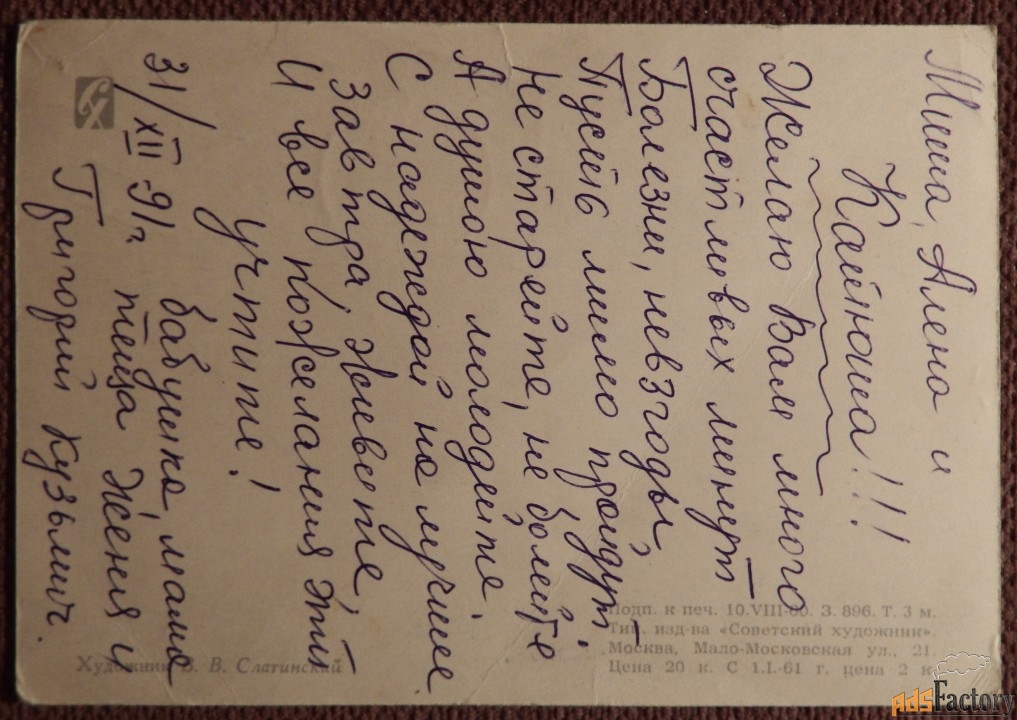 Миша, Алена и
Катюша!!!
Желаю Вам много
счастливых минут
Болезни, невзгоды
Пусть мимо пройдут.
Не старейте, не болейте
А душою молодейте.
С надеждой на лучшее
завтра, живите,
И все пожелания эти
учтите!
31/XII-91г. бабушка, мама
теща Женя и
Григорий Кузьмич.
Художник В. В. Слатинский
Подп. к печ. 10.VIII-60. З. 896. Т. 3 м.
Тип. изд-ва «Советский художник».
Москва, Мало-Московская ул., 21.
Цена 20 к. С 1.I.-61 г. цена 2 к.
AdsFactory